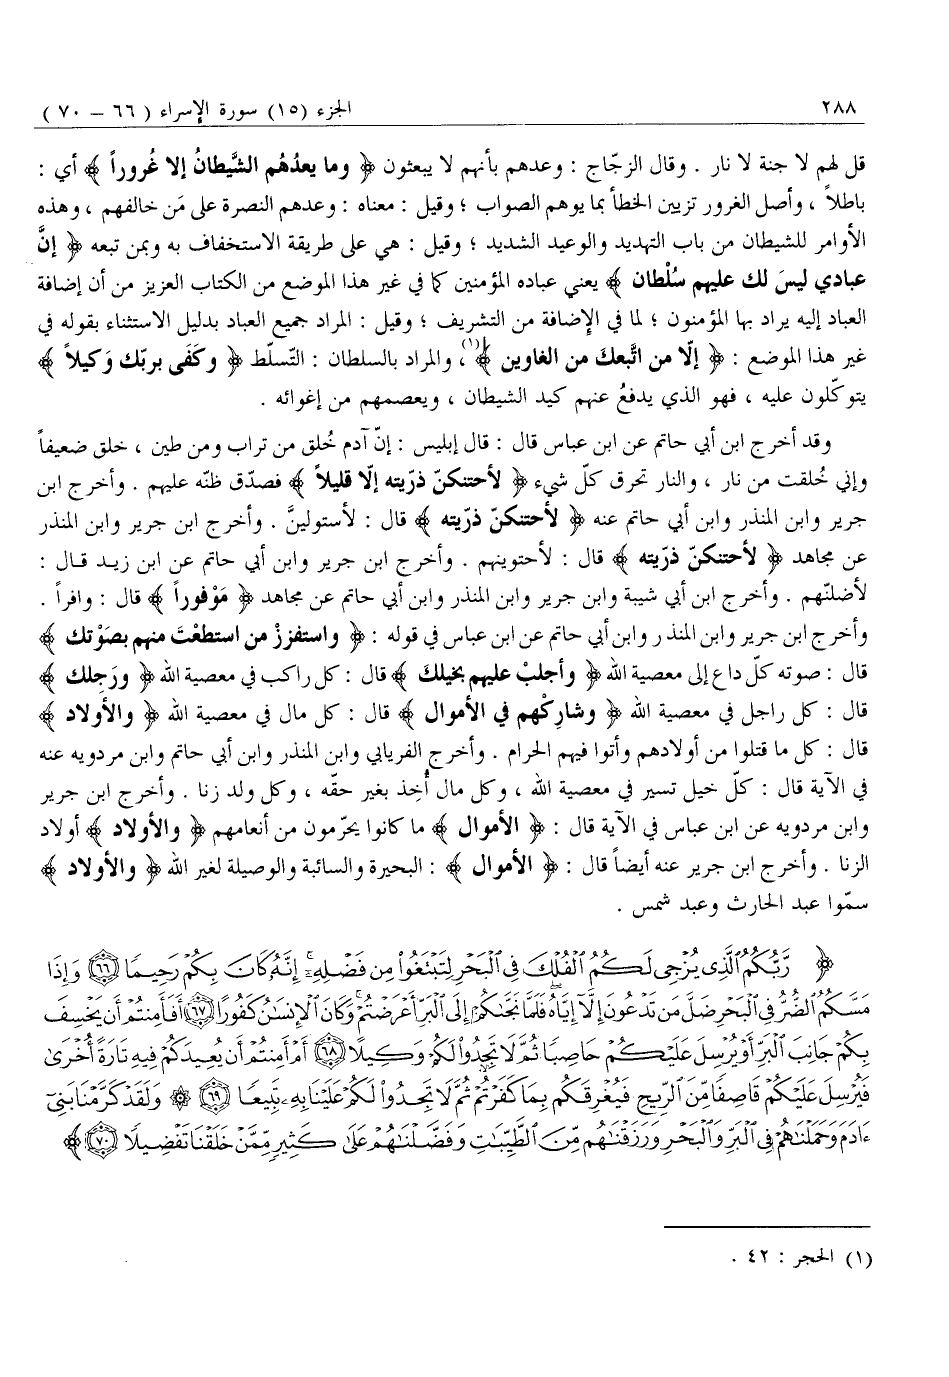 ٢٨٨ الجزء (١٥) سورة الإسراء ( ٦٦ – ٧٠ )
قل لهم لا جنة لا نار . وقال الزجّاج : وعدهم بأنهم لا يبعثون ﴿ وما يعدُهُم الشَّيطانُ إلا غُروراً ﴾ أي :
باطلاً ، وأصل الغرور تزيين الخطأ بما يوهم الصواب ؛ وقيل : معناه : وعدهم النصرة على مَن خالفهم ، وهذه
الأوامر للشيطان من باب التهديد والوعيد الشديد ؛ وقيل : هي على طريقة الاستخفاف به وبمن تبعه ﴿ إنَّ
عبادي ليسَ لك عليهم سُلْطان ﴾ يعني عباده المؤمنين كما في غير هذا الموضع من الكتاب العزيز من أن إضافة
العباد إليه يراد بها المؤمنون ؛ لما في الإضافة من التشريف ؛ وقيل : المراد جميع العباد بدليل الاستثناء بقوله في
غير هذا الموضع : ﴿ إلّا من اتَّبعكَ من الغاوين ﴾(١)، والمراد بالسلطان : التّسلّط ﴿ وكَفَى بربّك وَكيلاً ﴾
يتوكّلون عليه ، فهو الذي يدفعُ عنهم كيد الشيطان ، ويعصمهم من إغوائه .
وقد أخرج ابن أبي حاتم عن ابن عباس قال : قال إبليس : إنّ آدم خُلق من تراب ومن طين ، خلق ضعيفاً
وإني خُلقت من نار ، والنار تحرق كلّ شيء ﴿ لأحتنكنّ ذرّيته إلّا قليلاً ﴾ فصدّق ظنّه عليهم . وأخرج ابن
جرير وابن المنذر وابن أبي حاتم عنه ﴿ لأحتنكنّ ذرّيته ﴾ قال : لأستولينَّ . وأخرج ابن جرير وابن المنذر
عن مجاهد ﴿ لأحتنكنّ ذرّيته ﴾ قال : لأحتوينهم . وأخرج ابن جرير وابن أبي حاتم عن ابن زيد قال :
لأضلنّهم . وأخرج ابن أبي شيبة وابن جرير وابن المنذر وابن أبي حاتم عن مجاهد ﴿ مَوْفوراً ﴾ قال : وافراً .
وأخرج ابن جرير وابن المنذر وابن أبي حاتم عن ابن عباس في قوله : ﴿ واستفززْ من استطعْتَ منهم بصَوْتك ﴾
قال : صوته كلّ داع إلى معصية الله ﴿ وأجلبْ عليهم بخيلكَ ﴾ قال : كل راكب في معصية الله ﴿ ورَجِلك ﴾
قال : كل راجل في معصية الله ﴿ وشارِكْهم في الأموال ﴾ قال : كل مال في معصية الله ﴿ والأولاد ﴾
قال : كل ما قتلوا من أولادهم وأتوا فيهم الحرام . وأخرج الفريابي وابن المنذر وابن أبي حاتم وابن مردويه عنه
في الآية قال : كلّ خيل تسير في معصية الله ، وكل مال أُخِذ بغير حقّه ، وكل ولد زنا . وأخرج ابن جرير
وابن مردويه عن ابن عباس في الآية قال : ﴿ الأموال ﴾ ما كانوا يحرّمون من أنعامهم ﴿ والأولاد ﴾ أولاد
الزنا . وأخرج ابن جرير عنه أيضاً قال : ﴿ الأموال ﴾ : البحيرة والسائبة والوصيلة لغير الله ﴿ والأولاد ﴾
سمّوا عبد الحارث وعبد شمس .
﴿ رَّبُّكُمُ ٱلَّذِى يُزْجِى لَكُمُ ٱلْفُلْكَ فِى ٱلْبَحْرِ لِتَبْتَغُوا۟ مِن فَضْلِهِۦٓ إِنَّهُۥ كَانَ بِكُمْ رَحِيمًا ﴿٦٦﴾ وَإِذَا
مَسَّكُمُ ٱلضُّرُّ فِى ٱلْبَحْرِ ضَلَّ مَن تَدْعُونَ إِلَّآ إِيَّاهُ فَلَمَّا نَجَّىٰكُمْ إِلَى ٱلْبَرِّ أَعْرَضْتُمْ وَكَانَ ٱلْإِنسَٰنُ كَفُورًا ﴿٦٧﴾ أَفَأَمِنتُمْ أَن يَخْسِفَ
بِكُمْ جَانِبَ ٱلْبَرِّ أَوْ يُرْسِلَ عَلَيْكُمْ حَاصِبًا ثُمَّ لَا تَجِدُوا۟ لَكُمْ وَكِيلًا ﴿٦٨﴾ أَمْ أَمِنتُمْ أَن يُعِيدَكُمْ فِيهِ تَارَةً أُخْرَىٰ
فَيُرْسِلَ عَلَيْكُمْ قَاصِفًا مِّنَ ٱلرِّيحِ فَيُغْرِقَكُم بِمَا كَفَرْتُمْ ثُمَّ لَا تَجِدُوا۟ لَكُمْ عَلَيْنَا بِهِۦ تَبِيعًا ﴿٦٩﴾ ۞ وَلَقَدْ كَرَّمْنَا بَنِىٓ
ءَادَمَ وَحَمَلْنَٰهُمْ فِى ٱلْبَرِّ وَٱلْبَحْرِ وَرَزَقْنَٰهُم مِّنَ ٱلطَّيِّبَٰتِ وَفَضَّلْنَٰهُمْ عَلَىٰ كَثِيرٍ مِّمَّنْ خَلَقْنَا تَفْضِيلًا ﴿٧٠﴾ ﴾
(١) الحجر : ٤٢ .